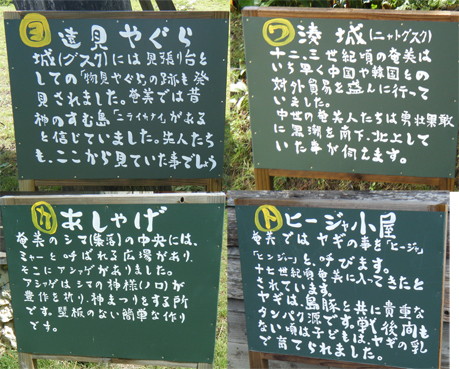 ヨ 遠見やぐら
城(グスク)には見張り台と
しての「物見やぐら」の跡も発
見されました。奄美では昔
神のすむ島「ニライカナイ」がある
と信じていました。先人たち
も、ここから見ていた事でしょう
ワ 湊城(ニャトグスク)
十二、三世紀頃の奄美は
いち早く中国や韓国との
対外貿易を盛んに行って
いました。
中世の奄美人たちは勇壮果敢
に黒潮を南下、北上して
いた事が伺えます。
カ あしゃげ
奄美のシマ(集落)の中央には、
ミャーと呼ばれる広場があり、
そこにアシャゲがありました。
アシャゲはシマの神様(ノロ)が
豊作を祈り、神まつりをする所
です。壁板のない簡単な作り
です。
ト ヒージャ小屋
奄美ではヤギの事を「ヒージャ」
「ヒンジャー」と、呼びます。
十七世紀頃奄美に入ってきたと
されています。
ヤギは、島豚と共に貴重な
タンパク源です。戦後間も
ない頃は子どもは、ヤギの乳
で育てられました。